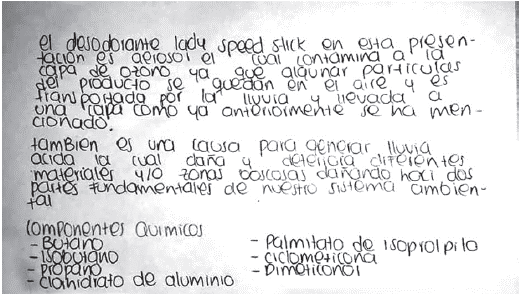 el desodorante lady speed stick en esta presen-
tación es aerosol el cual contamina a la
capa de ozono ya que algunar particulas
del producto se quedan en el aire y es
transportada por la lluvia y llevada a
una capa como ya anteriormente se ha men-
cionado.
tambien es una causa para generar lluvia
acida la cual daña y deteriora diferentes
materiales y/o zonas boscosas dañando haci dos
partes fundamentales de nuestro sistema ambien-
tal
Componentes Quimicos
- Butano
- Isobutano
- propano
- clorhidrato de aluminio
- Palmitato de isoproipilo
- ciclometicona
- Dimeticonol